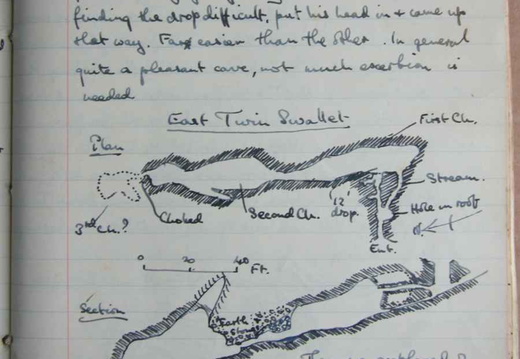 finding the drop difficult, put his head in & came up
that way. Far easier than the other. In general
quite a pleasant cave, not much exertion is
needed
East Twin Swallet
Plan
First Ch.
Stream
Hole in roof
12' drop.
Second Ch.
Choked
3rd Ch.?
Ent.
0 20 40 Ft.
Section
Earth
Stones